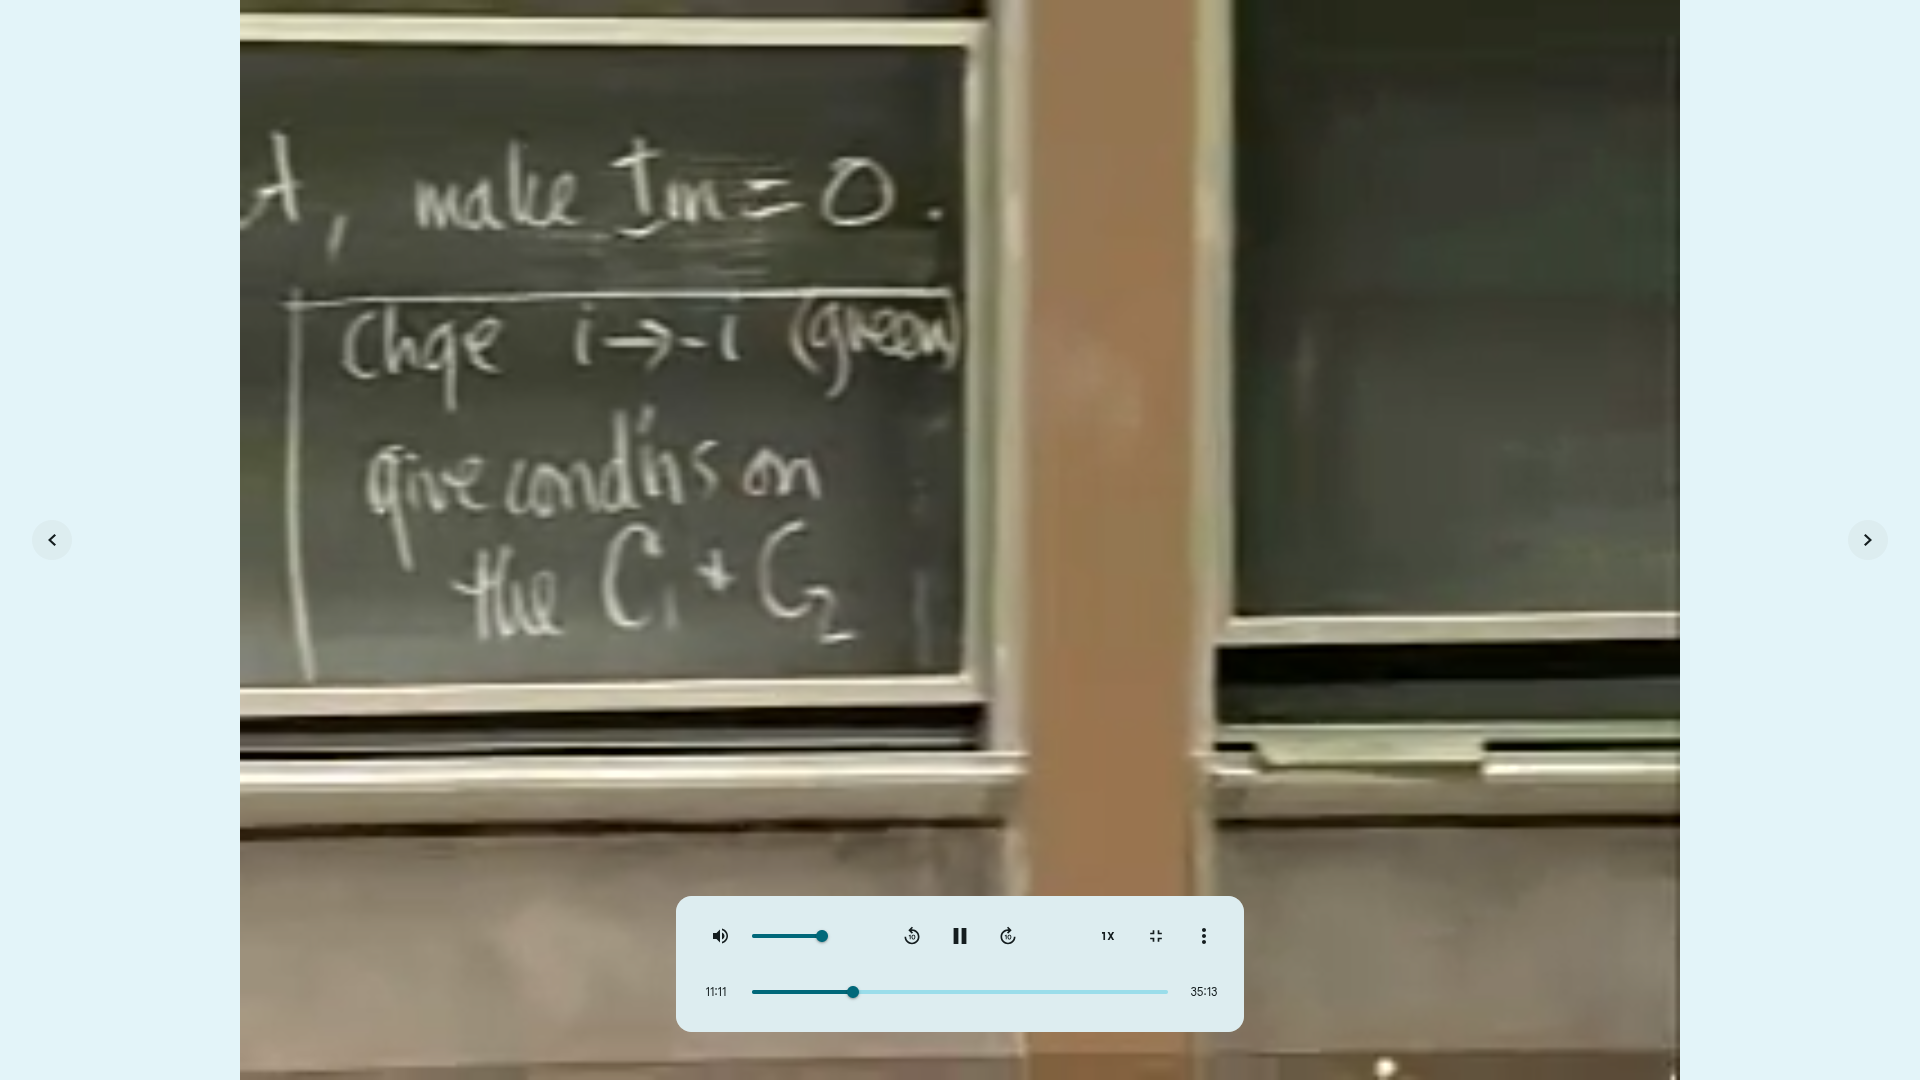 A, make Im = 0.
Chge i → -i (green)
give condn's on
the C₁ + C₂
1X
11:11
35:13